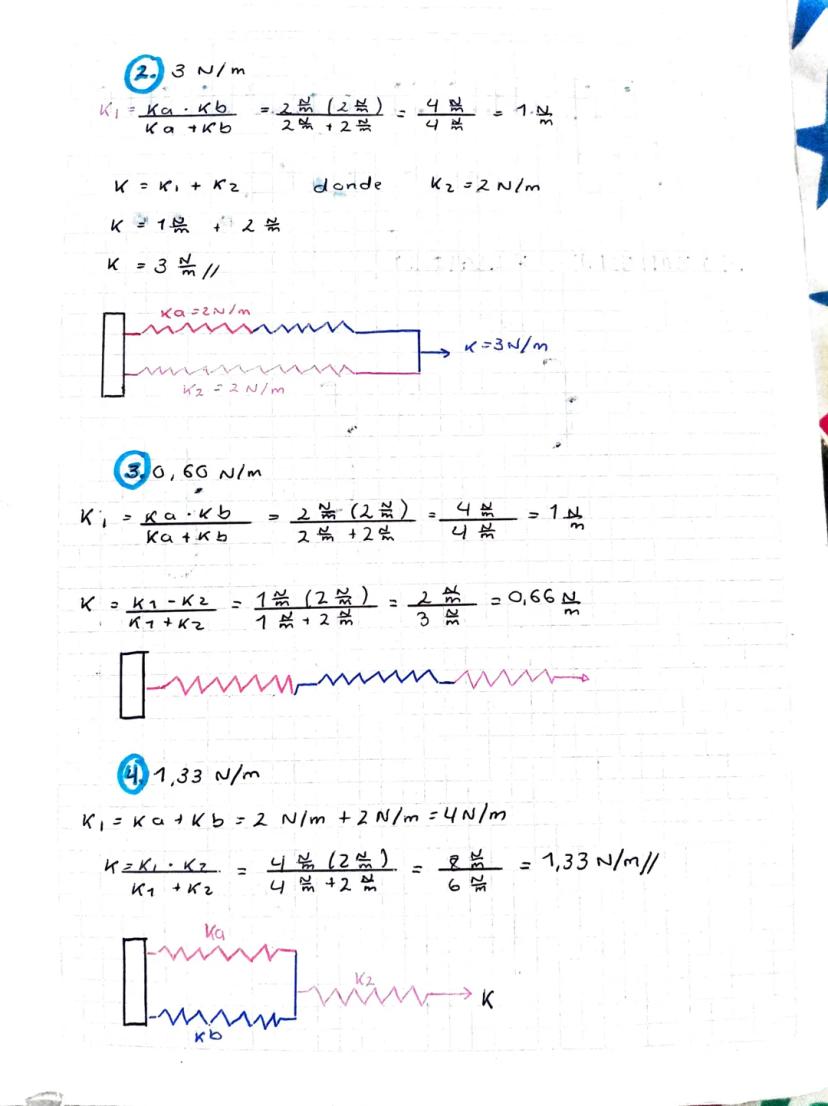 2. 3 N/m
K₁ = Ka · Kb / Ka + Kb = 2 N/m (2 N/m) / 2 N/m + 2 N/m = 4 N/m / 4 N/m = 1 N/m
K = K₁ + K₂ donde K₂ = 2 N/m
K = 1 N/m + 2 N/m
K = 3 N/m //
Ka = 2 N/m
K = 3 N/m
K₂ = 2 N/m
3. 0,60 N/m
K₁ = Ka · Kb / Ka + Kb = 2 N/m (2 N/m) / 2 N/m + 2 N/m = 4 N/m / 4 N/m = 1 N/m
K = K1 - K2 / K1 + K2 = 1 N/m (2 N/m) / 1 N/m + 2 N/m = 2 N/m / 3 N/m = 0,66 N/m
4. 1,33 N/m
K₁ = Ka + Kb = 2 N/m + 2 N/m = 4 N/m
K = K₁ · K₂ / K1 + K2 = 4 N/m (2 N/m) / 4 N/m + 2 N/m = 8 N/m / 6 N/m = 1,33 N/m //
Ka
K₂
K
Kb